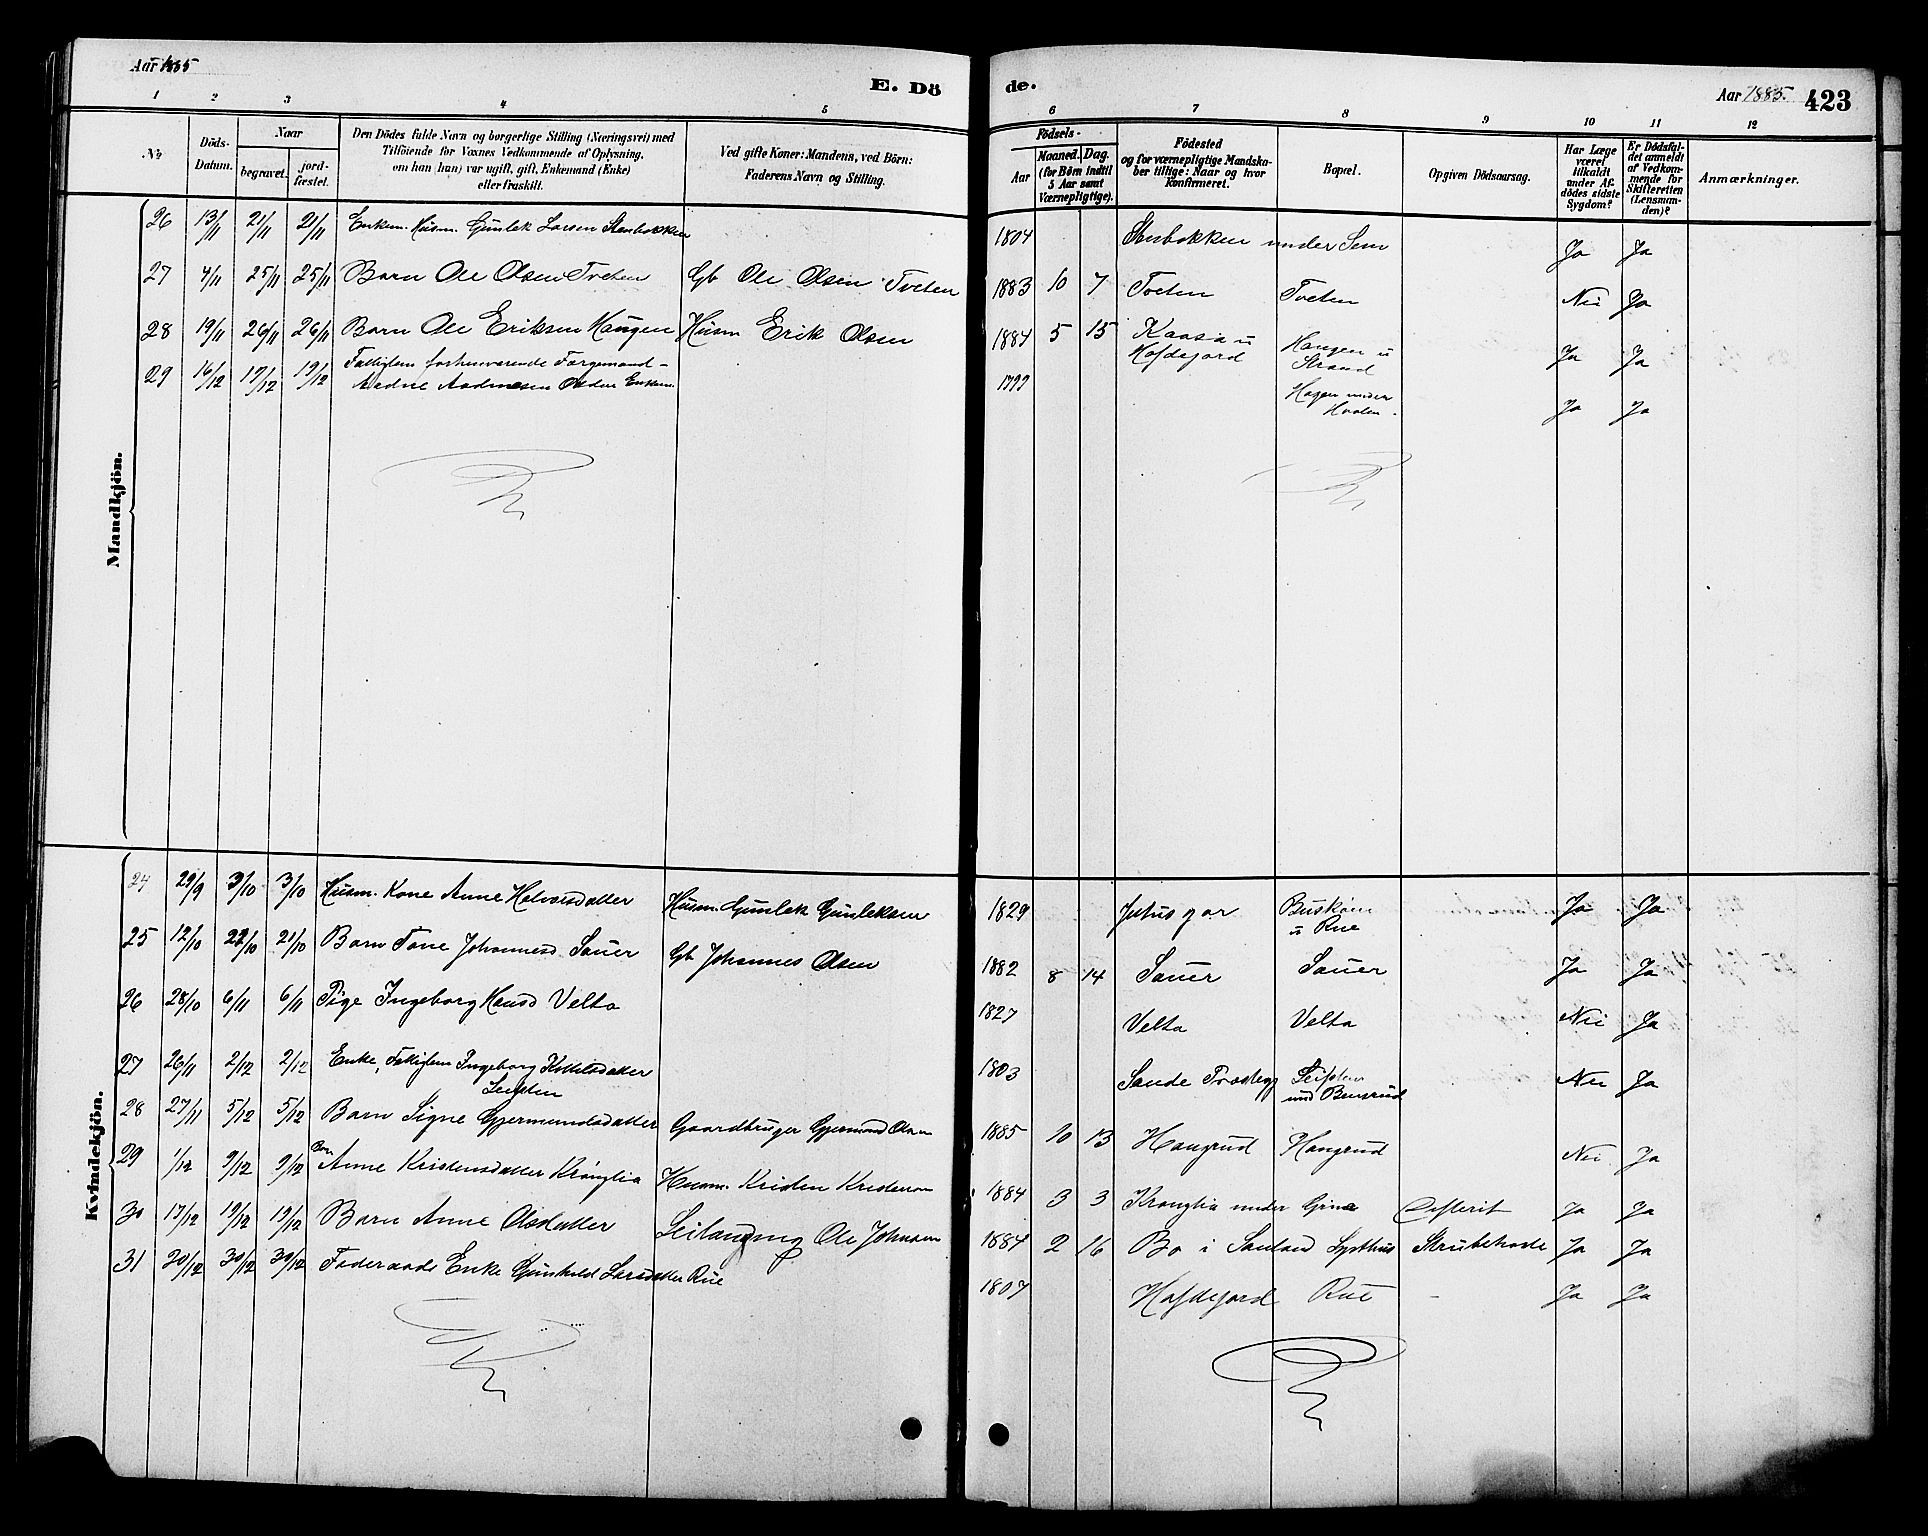 Aar 1885
E. Dö
de.
Aar 1885.
423
1 2 3 4 5 6 7 8 9 10 11 12
No.
Döds-Datum.
Naar
begravet.
jord-fæstet.
Den Dödes fulde Navn og borgerlige Stilling (Næringsvei) med
Tilföiende for Voxnes Vedkommende af Oplysning,
om han (hun) var ugift, gift, Enkemand (Enke)
eller fraskilt.
Ved gifte Koner: Mandens, ved Börn:
Faderens Navn og Stilling.
Födsels-
Aar
Maaned. Dag.
(for Börn indtil
5 Aar samt
Værnepligtige).
Födested
og for værnepligtige Mandska-
ber tillige: Naar og hvor
konfirmeret.
Bopæl.
Opgiven Dödsaarsag.
Har Læge
været
tilkaldt
under Af-
dödes sidste
Sygdom?
Er Dödsfal-
det anmeldt
af Vedkom-
mende for
Skifteretten
(Lensman-
den)?
Anmærkninger.
Mandkjön.
26 13/11 21/11 21/11 Enkem. Husm. Gunlek Larsen Stenbakken 1804 Stenbakken under Sem Ja Ja
27 4/11 25/11 25/11 Barn Ole Olsen Tveten Gb Ole Olsen Tveten 1883 10 7 Tveten Tveten Nei Ja
28 19/11 26/11 26/11 Barn Ole Eriksen Haugen Husm Erik Olsen 1884 5 15 Kaasa u Haugen u
Hafdejord Strand Ja Ja
29 16/12 19/12 19/12 Fattiglem forhenværende Færgemand
Aadne Aadnesen Enkem. 1799 Hagen under
Ja Ja
Kvindekjön.
24 29/9 3/10 3/10 Husm. Kone Anne Halvorsdatter Husm. Gunlek Gunleksen 1829 Rue Ja Ja
25 12/10 22/10 21/10 Barn Tone Johannesd. Sauer Gb Johannes Olsen 1882 8 14 Sauer Sauer Ja Ja
26 28/10 6/11 6/11 Pige Ingeborg Hansd Velta 1827 Velta Velta Nei Ja
27 26/11 2/12 2/12 Enke, Fattiglem Ingeborg Kittilsdatter
1803 Sande Præsteg. Nei Ja
28 27/11 5/12 5/12 Barn Signe Gjermundsdatter Gaardbruger Gjermund Olsen 1885 10 13 Haugrud Haugrud Nei Ja
29 1/12 9/12 9/12 Barn Anne Kristensdatter Kronglia Husm. Kristen Kristensen 1884 3 3 Kronglia under Grina Difterit Ja Ja
30 17/12 19/12 19/12 Barn Anne Olsdatter Leilænding Ole Johnsen 1884 2 16 Bø i Sauland Lysthus Strubehoste Ja Ja
31 20/12 30/12 30/12 Føderaads Enke Gunhild Larsdatter Rue 1807 Hafdejord Rue - Ja Ja